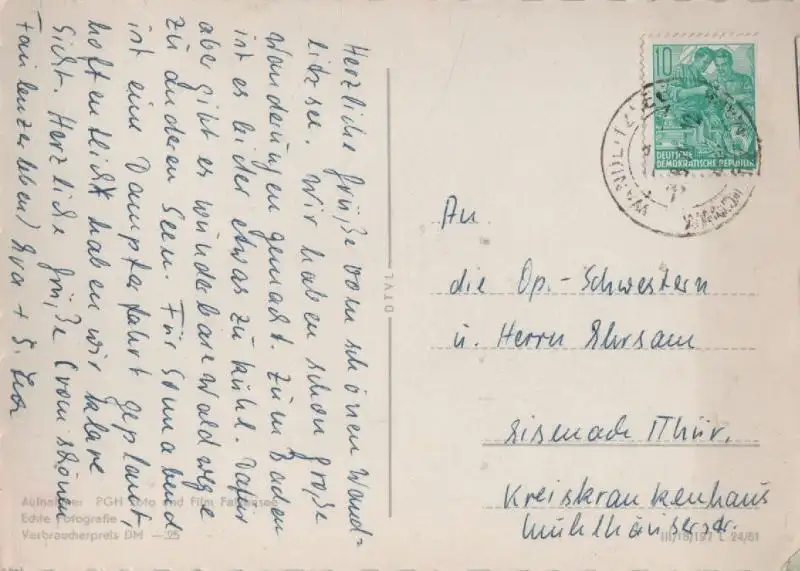 Herzliche Grüße vom schönen Wand-
litzsee. Wir haben schon große
Wanderungen gemacht. Zum Baden
ist es leider etwas zu kühl. Dafür
aber gibt es wunderbare Waldwege
zu anderen Seen. Für Sonnabend
ist eine Dampferfahrt geplant,
hoffentlich haben wir klare
Sicht. Herzliche Grüße (vom schönen
Faulenzerleben) Eva + S.
Aufnahme: PGH Foto und Film
Echte Fotografie
Verbraucherpreis DM —25
DTVL
10
DEUTSCHE
DEMOKRATISCHE REPUBLIK
WANDLITZSEE
An
die Op.-Schwestern
u. Herrn Ehrsam
Eisenach /Thür.
Kreiskrankenhaus
Mühlhäuserstr.
III/18/197 L 24/61